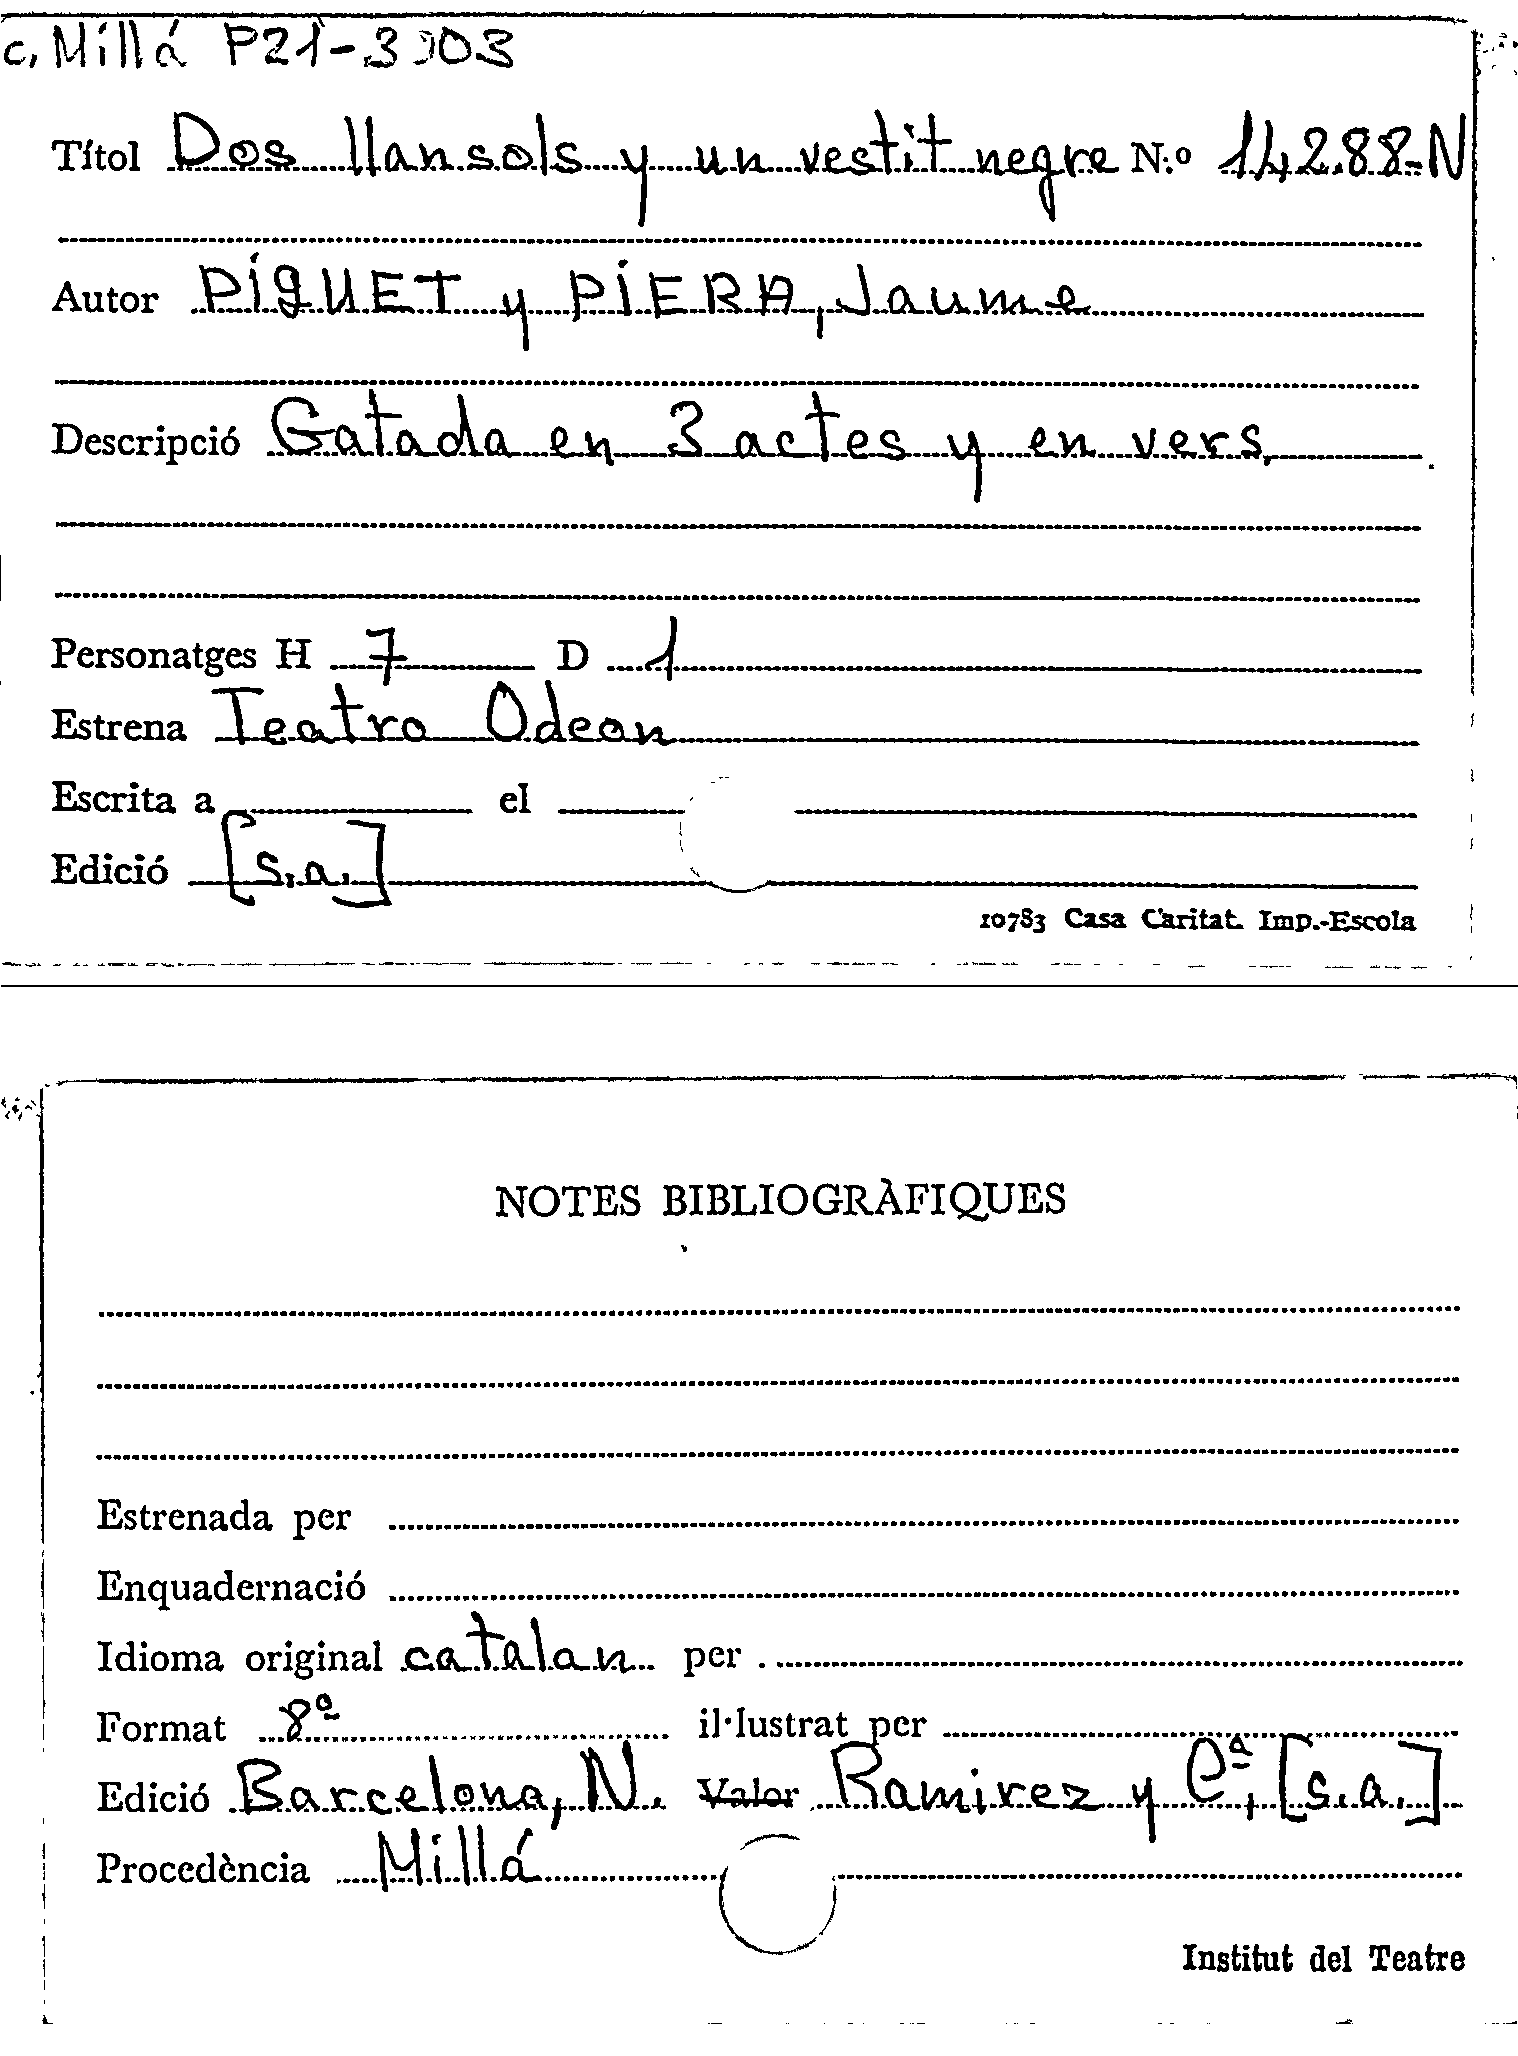 c, Millá P21-3003
Títol Dos llansols y un vestit negre N.º 14.288-N
Autor PIGUET y PIERA, Jaume
Descripció Gatada en 3 actes y en vers.
Personatges H 7 D 1
Estrena Teatro Odeon
Escrita a el
Edició [s.a.]
10783 Casa Caritat. Imp.-Escola
NOTES BIBLIOGRÀFIQUES
Estrenada per
Enquadernació
Idioma original catalan per
Format 8º il·lustrat per
Edició Barcelona, N. Valor Ramirez y Cª, [s.a.]
Procedència Millá
Institut del Teatre